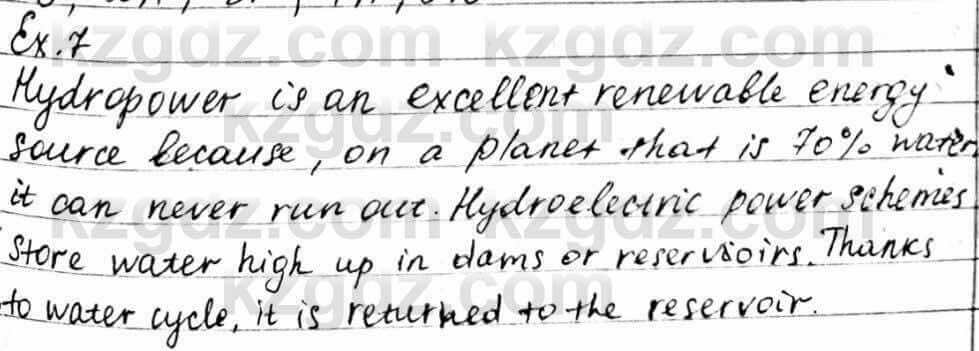 Ex. 7
Hydropower is an excellent renewable energy
source because, on a planet that is 70% water,
it can never run out. Hydroelectric power schemes
store water high up in dams or reservioirs. Thanks
to water cycle, it is returned to the reservoir.
kzgdz.com